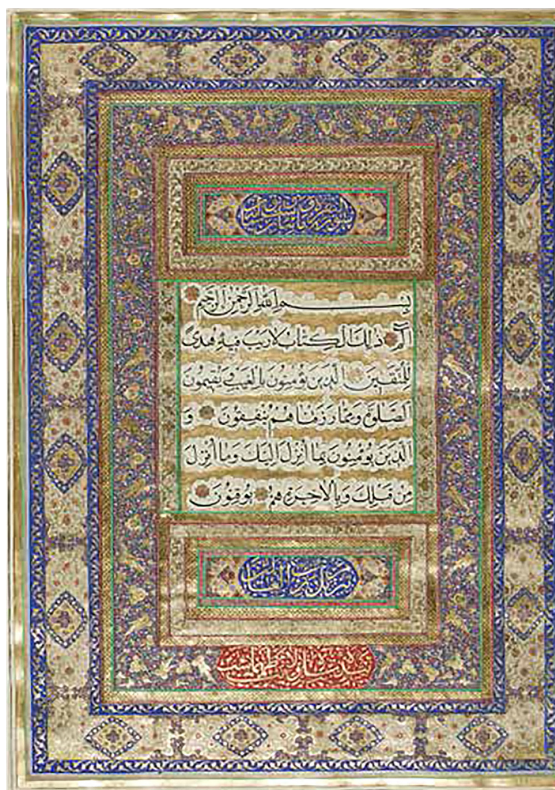 بسم الله الرحمن الرحيم
الم ذلك الكتاب لا ريب فيه هدى
للمتقين الذين يؤمنون بالغيب ويقيمون
الصلوة ومما رزقناهم ينفقون و
الذين يؤمنون بما أنزل إليك وما أنزل
من قبلك وبالآخرة هم يوقنون